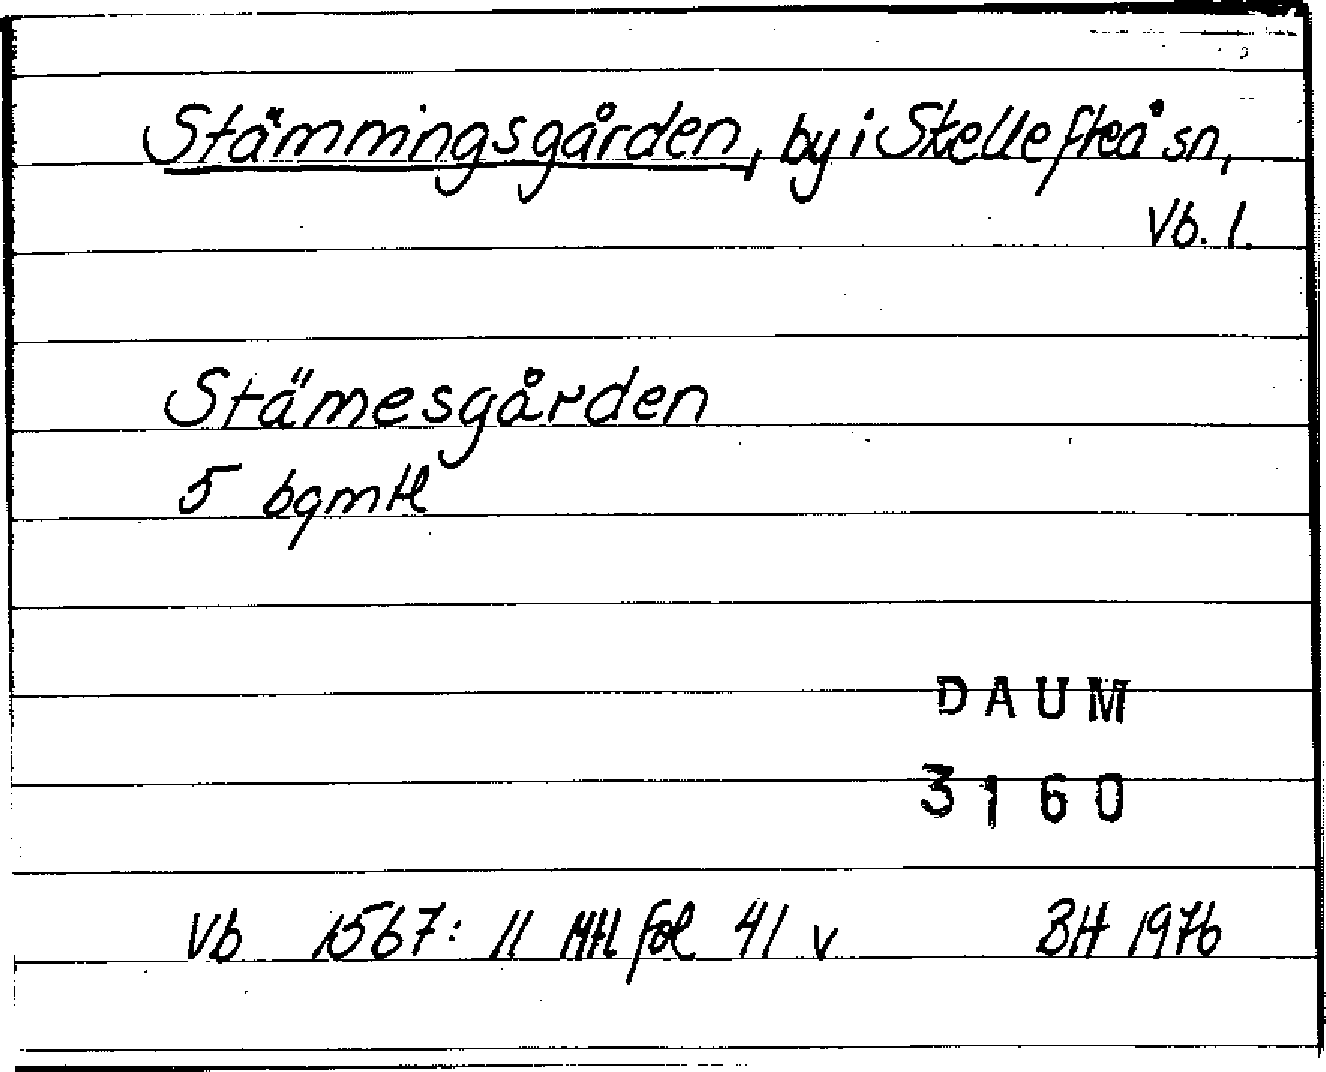 Stämmingsgården, by i Skellefteå sn,
Vb. l.
Stämesgården
5 bqmtl
DAUM
3160
Vb 1567: 11 Mtl fol 41 v BH 1976